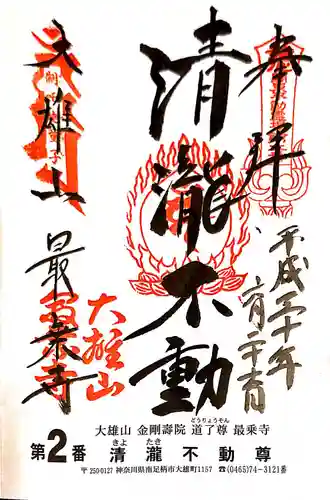 奉拝
平成三十年
六月二十六日
清瀧不動
大雄山
最乗寺
大雄山
大雄山 金剛壽院 道了尊 最乗寺
どうりょうそん
第2番 清瀧不動尊
きよ たき
〒250-0127 神奈川県南足柄市大雄町1157 ☎(0465)74-3121番